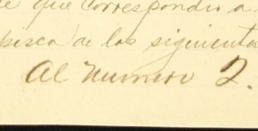 e que correspondió a
pisca de los siguientes
Al Numero 2.